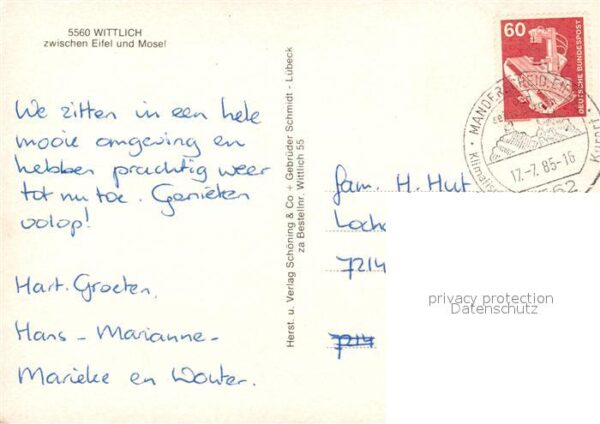 5560 WITTLICH
zwischen Eifel und Mosel
We zitten in een hele
mooie omgeving en
hebben prachtig weer
tot nu toe. Genieten
volop!
Hart. Groeten,
Hans - Marianne -
Marieke en Wouter.
Herst. u. Verlag Schöning & Co + Gebrüder Schmidt - Lübeck
za Bestellnr. Wittlich 55
60
DEUTSCHE BUNDESPOST
MANDERSCHEID, EIFEL
17.-7. 85-16
562
Kurort
fam. H. Hut
Loche
7214
7214
privacy protection
Datenschutz